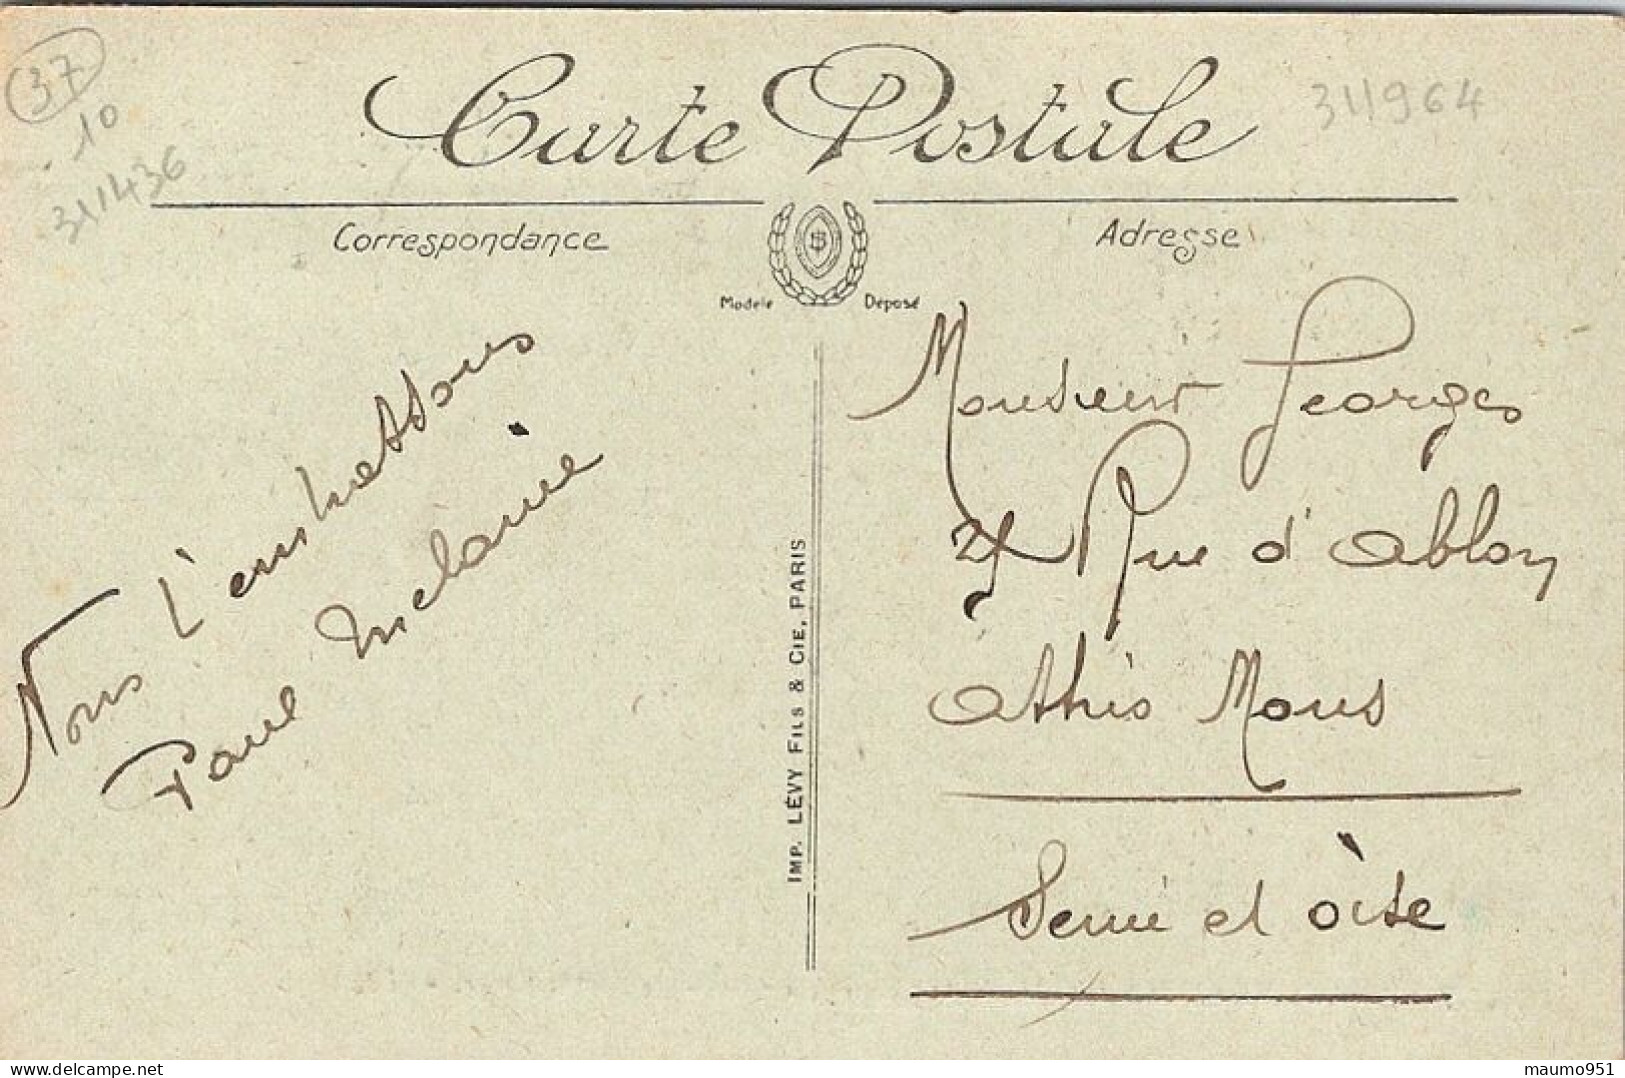 37
10
311436
Carte Postale
311964
Correspondance
Adresse
Modèle Déposé
Nous t'embrassons
Paul Melanie
IMP. LÉVY FILS & CIE, PARIS
Monsieur Georges
Rue d'Ablon
Athis Mons
Seine et Oise
delcampe.net
maumo951